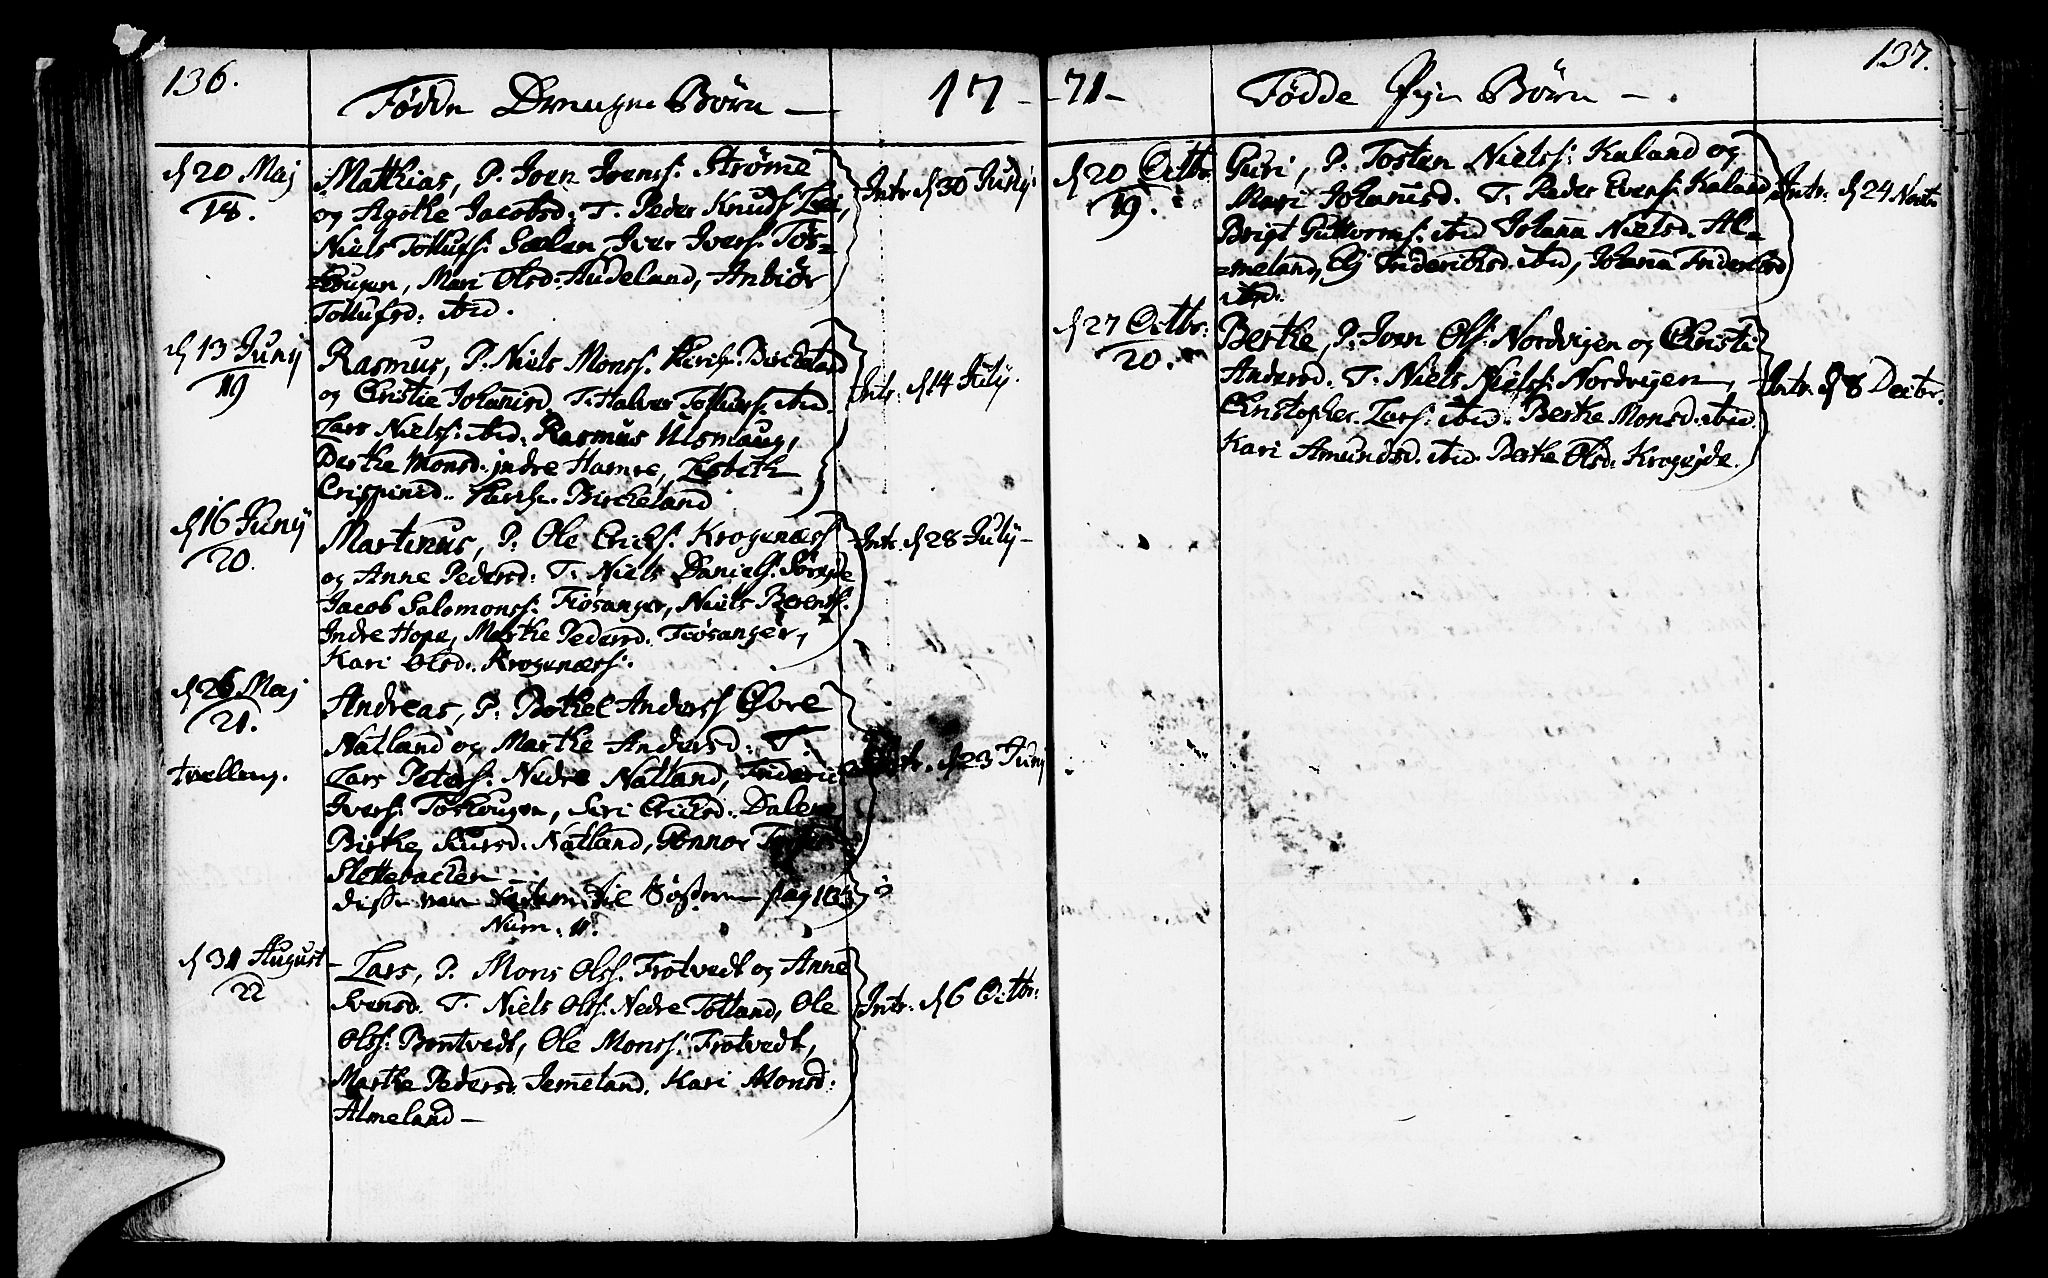 136.
Fødde Drenge Børn —
17 -
d 20 Maj
18.
Mathias, P. Joen Joenss: Strømè
og Agothe Jacobsd: T. Peder Knuds:
Niels Tollufs: Sælen, Iver Ivers: Tos=
=kougen, Mari Olsd: Hudeland, Anbiør
Tollufsd: ibid.
Intr. d 30 Junÿ
d 13 Junÿ
19
Rasmus, P. Niels Monss. Birckeland
og Christie Johanisd T. Halver Tollufs: ibid.
Lars Nielss: ibid. Rasmus Ulsmaug,
Berthe Monsd. indre Hamre, Lisbeth
Crispinsd.. Birckeland
Intr. d 14 Julÿ.
d 16 Junÿ
20.
Martinus, P. Ole Ericks: Krogenæss
og Anne Pedersd: T. Niels Daniels:
Jacob Salomonss: Fiøsanger, Niels Berents.
Indre Hope, Marthe Pedersd. Fiøsanger,
Kari Olsd.. Krogenæss.
Intr. d 28 Julÿ -
d 26 Maj
21.
tvelleng.
Andreas, P. Bothel Anderss Øvre
Natland og Marthe Andersd: T.
Lars Peters: Nedre Natland, Frideric
Ivers: Toskougen, Siri Ericksd. Dalene
Birthe Siursd. Natland, Gonnor
Slettebacken —
disse vare til Søstren pag 133
Num. 11.
d 23 Junÿ
d 31 August
22
Lars, P. Mons Olss. Frotvedt og Anne
Svensd. T. Niels Olss. Nedre Totland, Ole
Olss. Bontvedt, Ole Monss. Frotvedt,
Marthe Pedersd. Jemeland. Kari Monsd:
Almeland —
Intr. d 6 Octbr:
137.
- 71 -
Fødde Pige Børn — .
d 20 Octbr.
19.
Guri, P. Tosten Nielss: Kaland og
Mari Johanisd. T. Peder Evens: Kaland
Brigt Guttorms: ibid Johana Nielsd. Al=
=meland, Elj Friderichsd. ibid, Johana Fridericksd
ibid.
Intr: d 24 Novbr.
d 27 Octbr:
20.
Berthe, P. Joen Ols: Nordvigen og Christi
Andersd. T. Niels Nielss: Nordvigen,
Christopher Larss: ibid. Berthe Monsd. ibid
Kari Amundsd. ibid. Berthe Olsd. Krogejde.
Intr. d 8 Decbr.